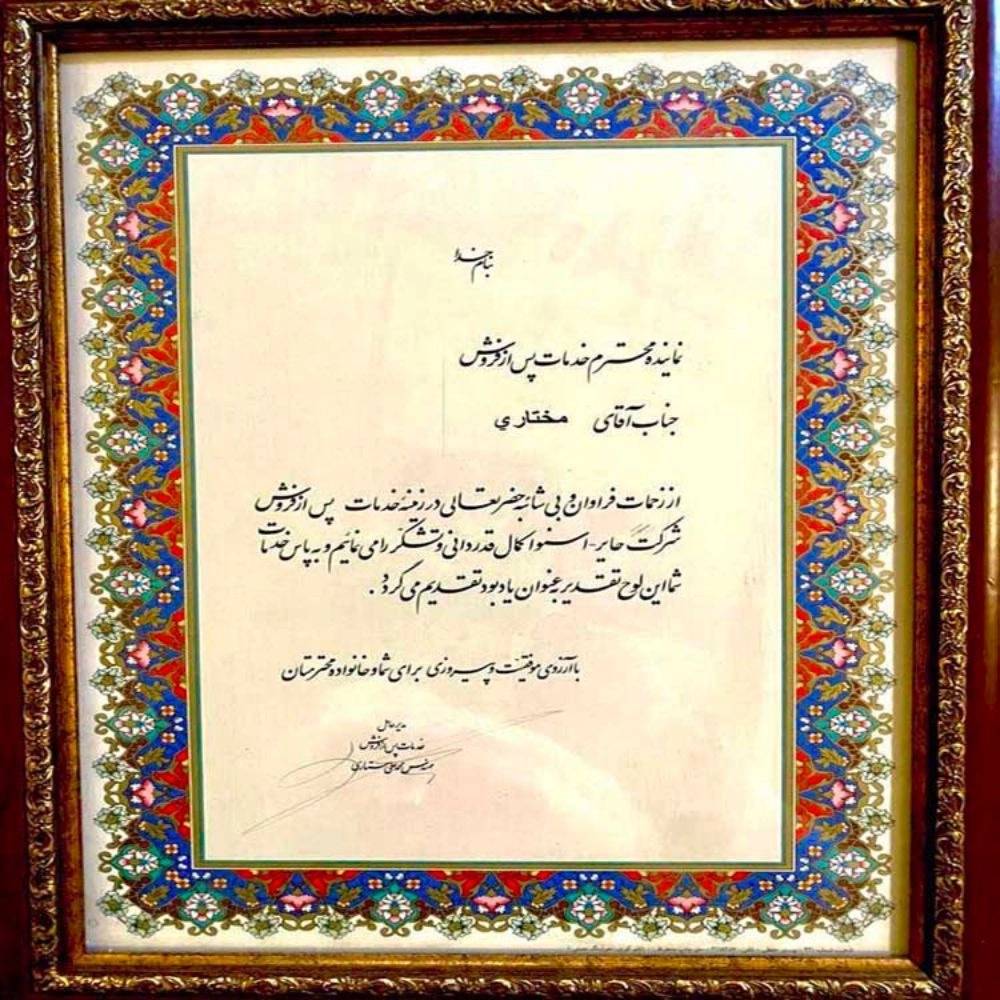 بنام خدا
نماینده محترم خدمات پس از فروش
جناب آقای مختاري
از زحمات فراوان و بی شائبه حضرتعالی در زمینه خدمات پس از فروش
شرکت حایر-اسنوا کمال قدردانی و تشکر را می نمائیم و به پاس خدمات
شما این لوح تقدیر به عنوان یادبود تقدیم می گردد.
با آرزوی موفقیت و پیروزی برای شما و خانواده محترمتان
مدیرعامل
خدمات پس از فروش
مهندس محمدعلی